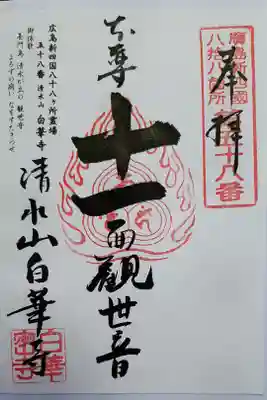 奉拝
廣島新四國
八拾八ヶ所
第五十八番
本尊
十一面觀世音
広島新四国八十八ヶ所霊場
五十八番 清水山 白華寺
御詠歌
清水山白華寺
白華
密寺